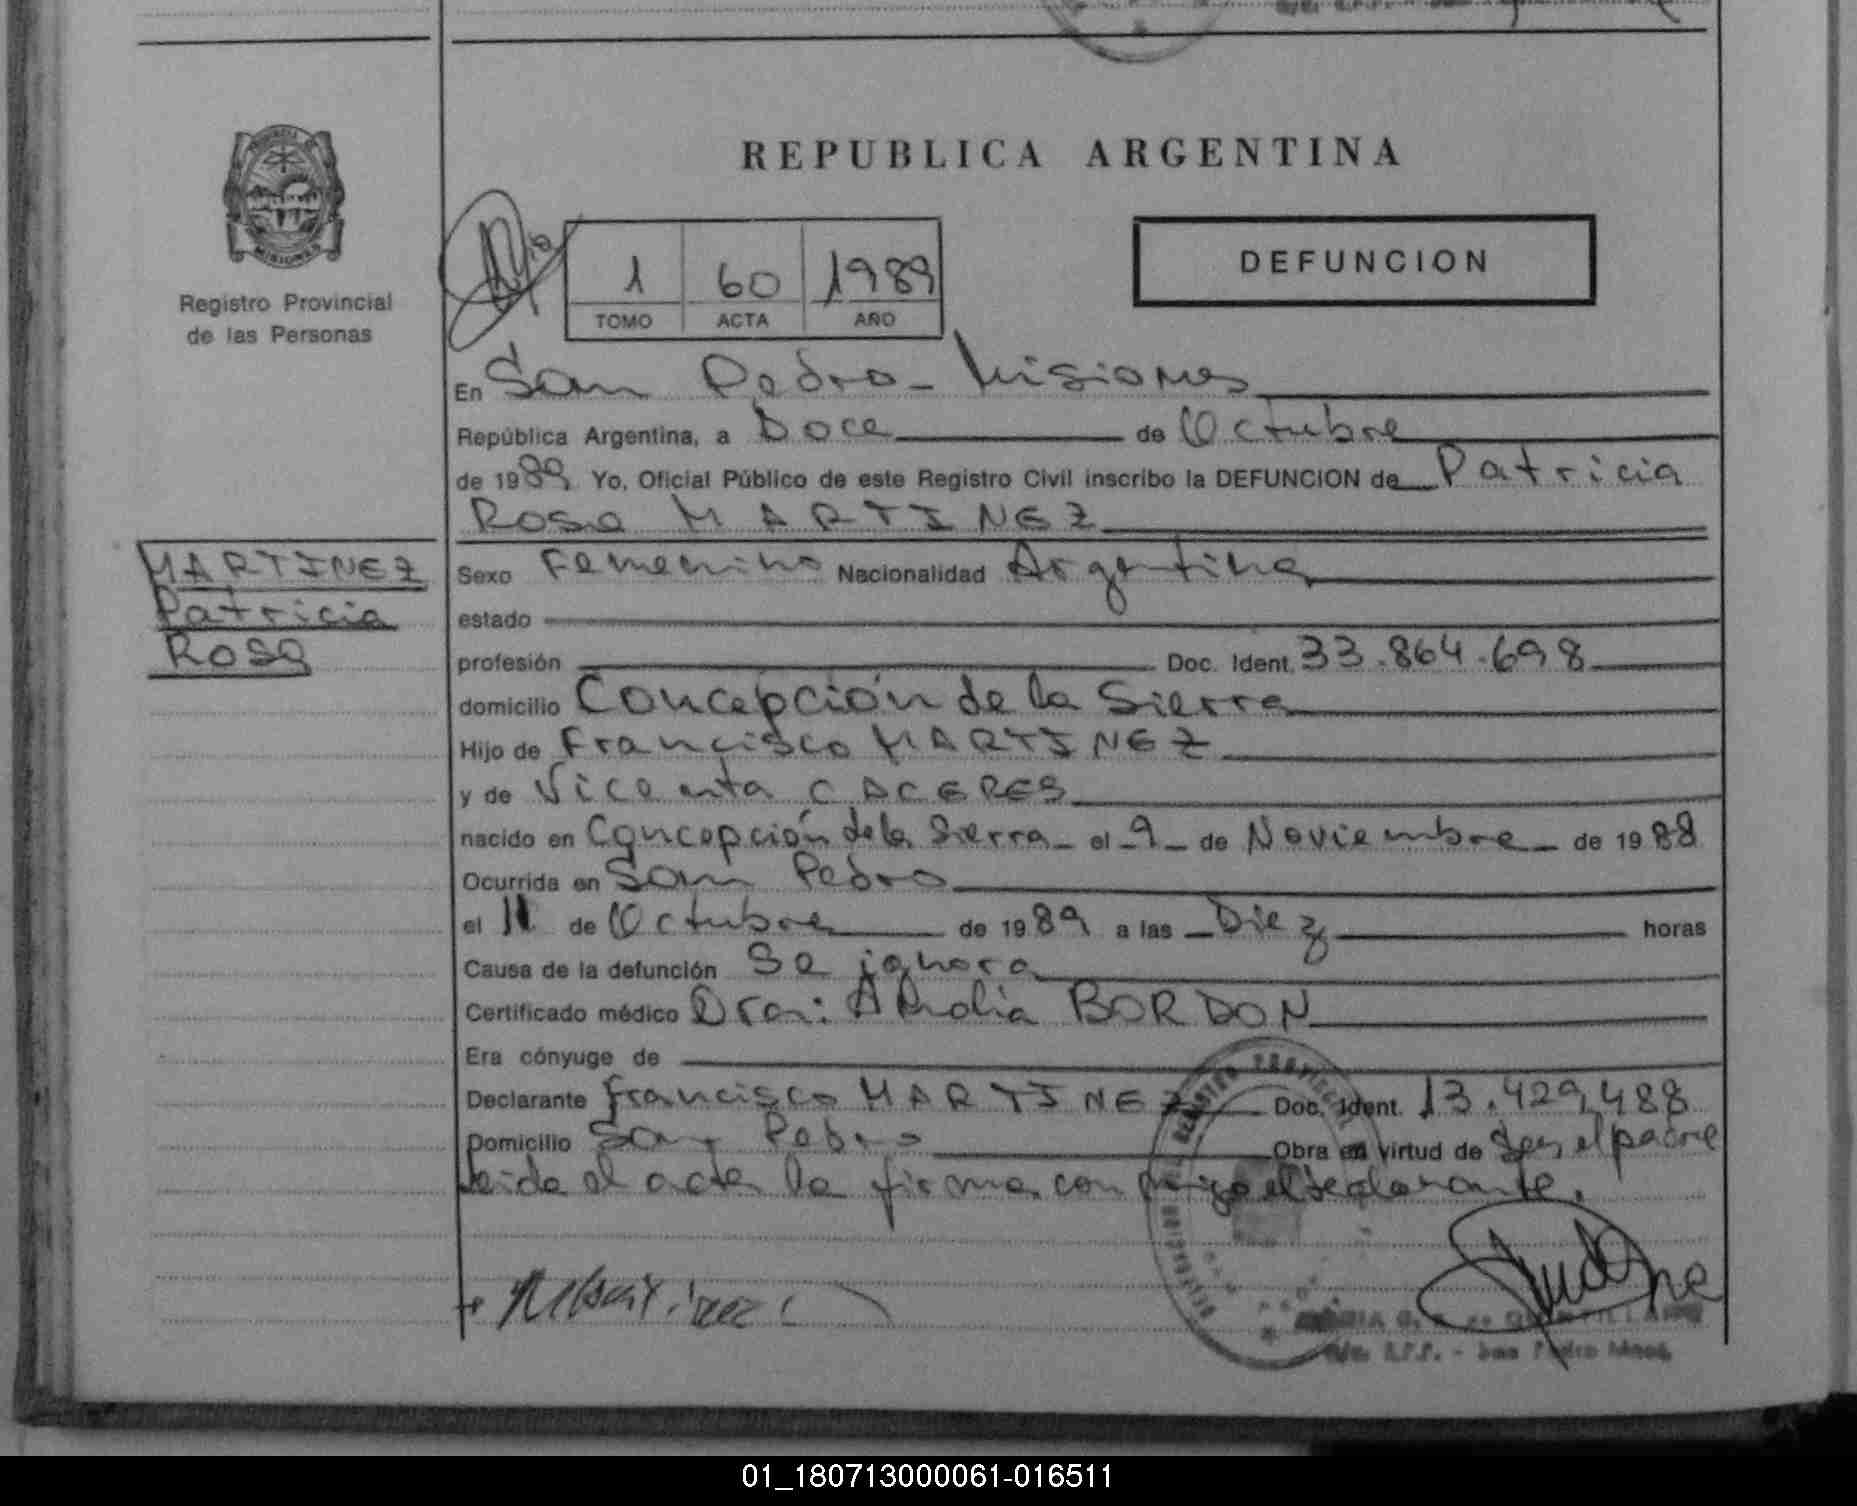 REPUBLICA ARGENTINA
MISIONES
Registro Provincial
de las Personas
1 60 1989
TOMO ACTA AÑO
DEFUNCION
En San Pedro - Misiones
República Argentina, a Doce de Octubre
de 1989 Yo, Oficial Público de este Registro Civil inscribo la DEFUNCION de Patricia
Rosa MARTINEZ
MARTINEZ
Patricia
Rosa
Sexo Femenino Nacionalidad Argentina
estado
profesión Doc. Ident. 33.864.698
domicilio Concepción de la Sierra
Hijo de Francisco MARTINEZ
y de Vicenta CACERES
nacido en Concepción de la Sierra - el - 9 - de Noviembre - de 1988
Ocurrida en San Pedro
el 11 de Octubre de 1989 a las Diez horas
Causa de la defunción Se ignora
Certificado médico Dra: BORDON
Era cónyuge de
Declarante Francisco MARTINEZ Doc. Ident. 13.429.488
Domicilio San Pedro Obra en virtud de Ser el padre
leida el acta la firma conmigo el declarante.
01_180713000061-016511